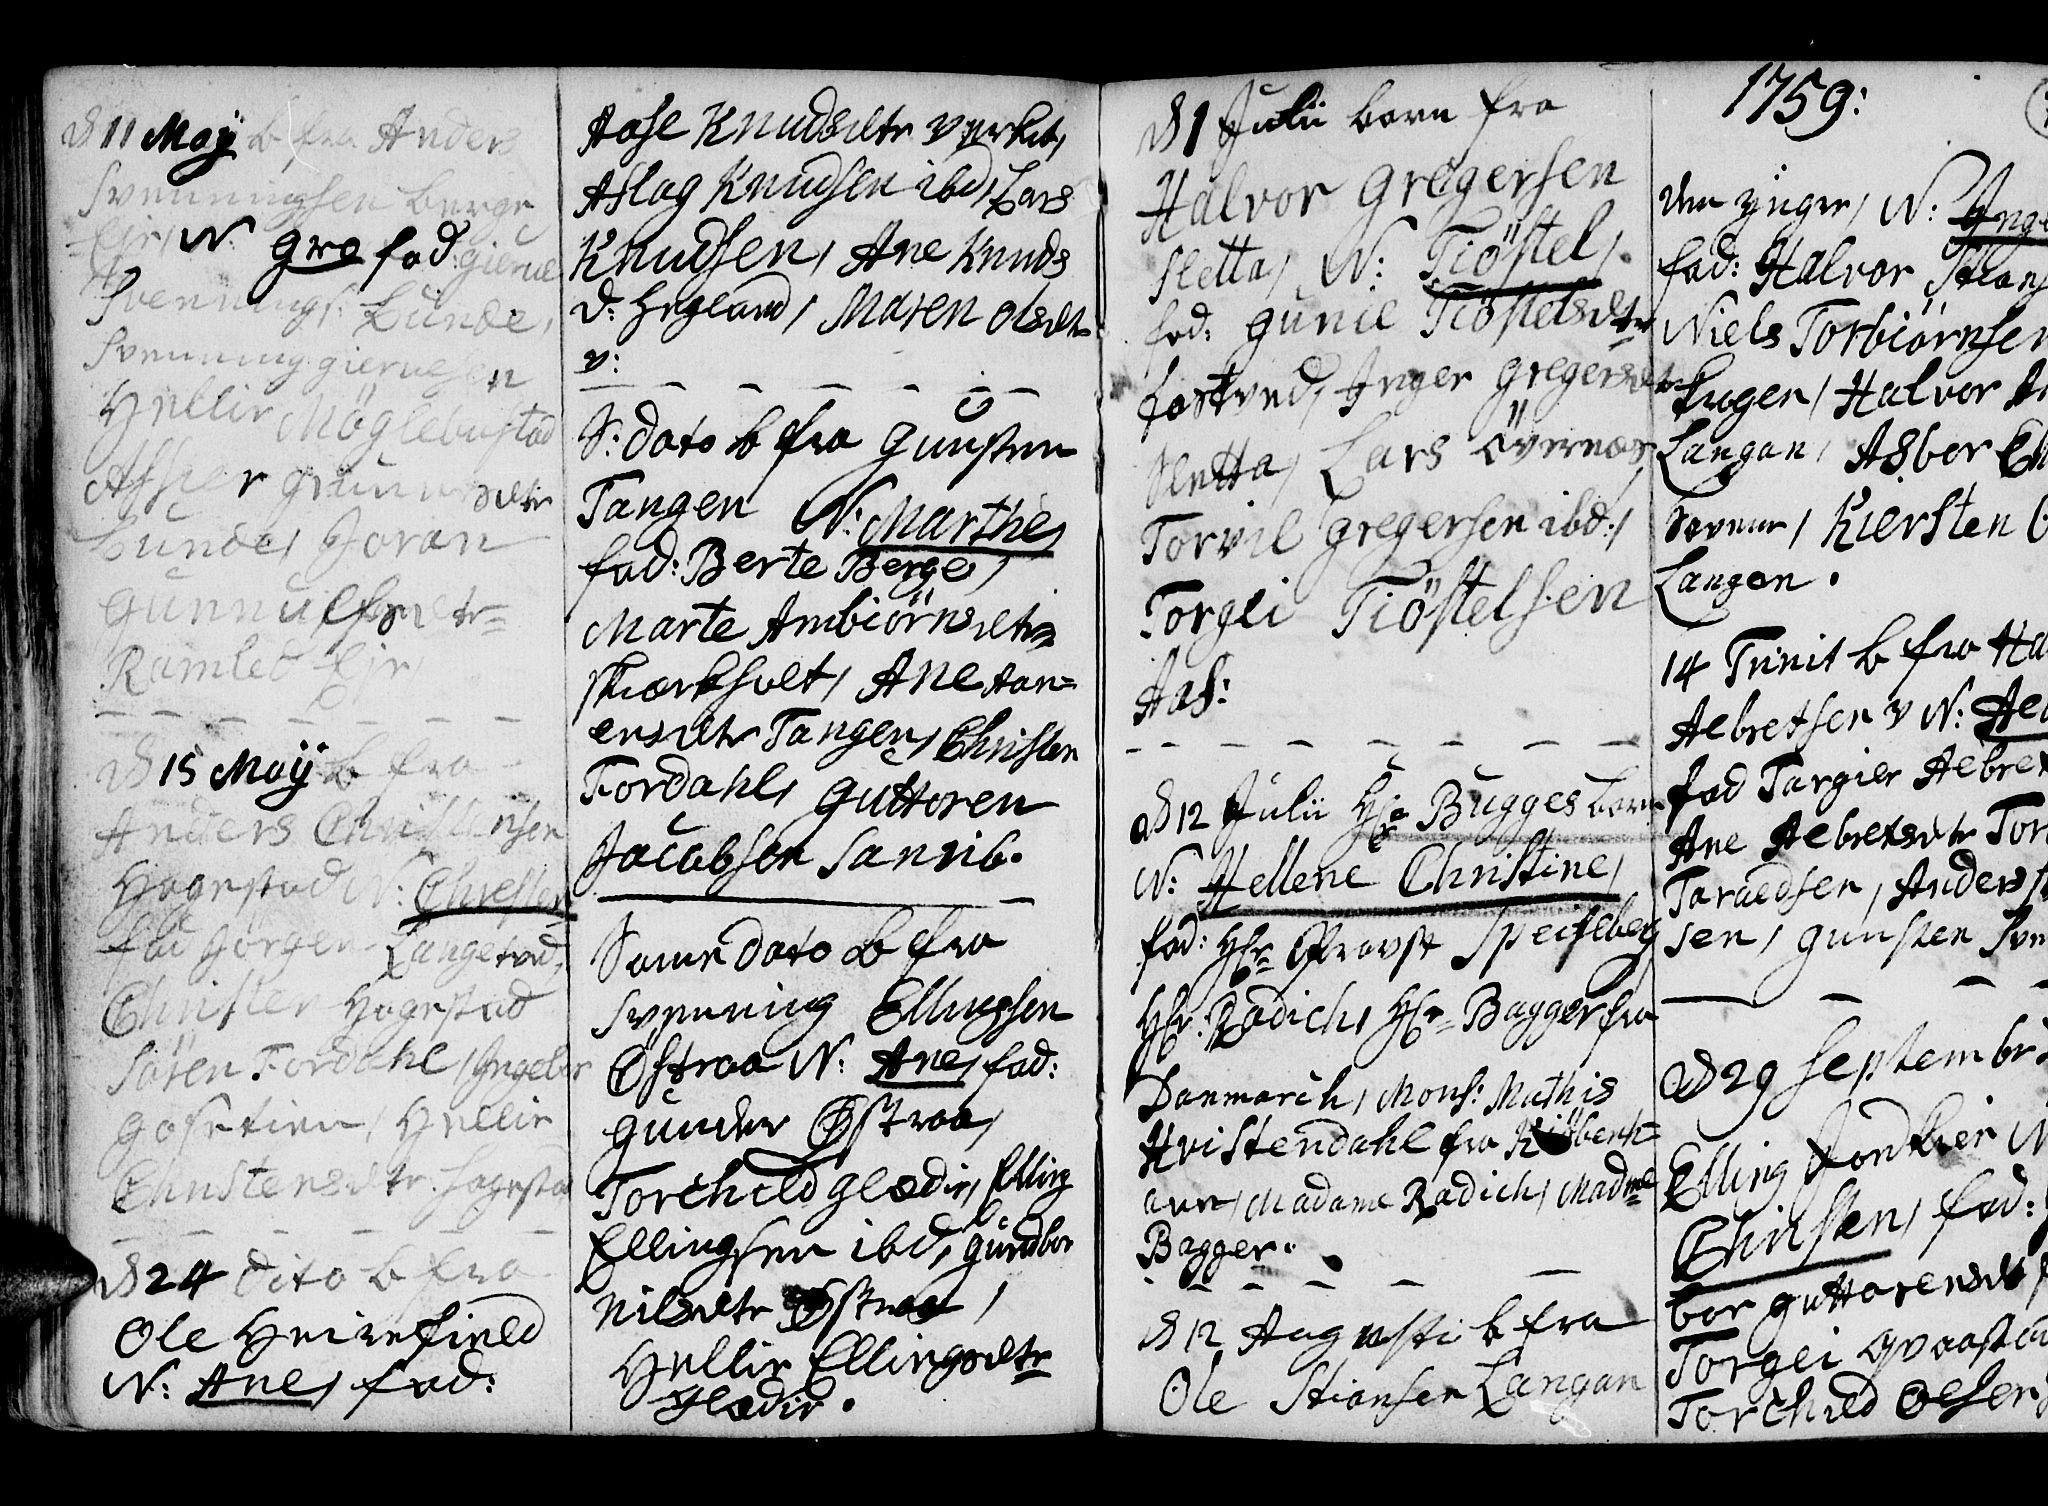 d 11 Maÿ b fra Anders
Svenningsen berge
Eie, N: Gro fad: gierue
Svennings: Lunde,
Svenning gieruesen
Hellie Möglebustad
Assier gunuersdtr
Lunde, Joran
Gunnulfsdtr
Ramleb Eie,
d 15 Maÿ b fra
Anders Christensen
Hagestad N: Christen
fad Jörgen Langetved,
Christen Hagestad
Sören Fordahl, Ingebor
Gosetien, Hellie
Christensdtr. Hagestad
d 24 dito b fra
Ole Heirefield
N: Ane, fad:
Aase Knudsdtr verket,
Aslag Knudsen ibd, Lars
Knudsen, Ane Knuds
d: Hegland, Maren Olsdtr
v:
S: dato b fra Gunsten
Tangen N: Marthe,
fad: Berte Berge,
Marte Ambiörnsdtr
skiærkholt, Ane Aan=
ensdtr Tangen, Christen
Fordahl, Guttoren
Jacobsen Sannib.
Same dato b fra
Svenning Ellingsen
Østraa N: Ane, fad:
Gunder Østraa,
Torchild glødie, Elling
Ellingsen ibd, gundbor
Nilsdtr Østraa,
Hellie Ellingsdtr
glødie.
d 1 Julii barn fra
Halvor Gregersen
Sletta, N: Tiöstel,
fad: gunil Tiöstelsdtr
fostved, Inger gregersdtr
Sletta, Lars övernæs,
Torvil gregersen ibd:,
Torgei Tiöstelsen
Aas:
d 12 Julii Hr Bugges barn
N: Hellene Christine,
fad: Hr Provst Speilberg
Hr: Radich, Hr Bagger fra
Danmarch, Mons: Mathis
Hvistendahl fra Kiöben=
avn, Madame Radich, Madme
Bagger.
d 12 Augusti b fra
Ole Stiansen Langan
1759:
den yngre, N: Inge
fad: Halvor Stians
Niels Torbiörnsen
Haugen, Halvor
Langan, Asbor
Kiersten
Langan.
14 Trinit b fra Ha
Aelbretsen v N: Ael
fad Targier Aelbret
Ane Aelbretsdtr Tor
Taraldsen, Anders
sen, Gunsten Sve
d 29 Septembr
Elling Jordkier N
Christen, fad:
bor guttorensdt
Torgei Qvaast
Torchild Olsen